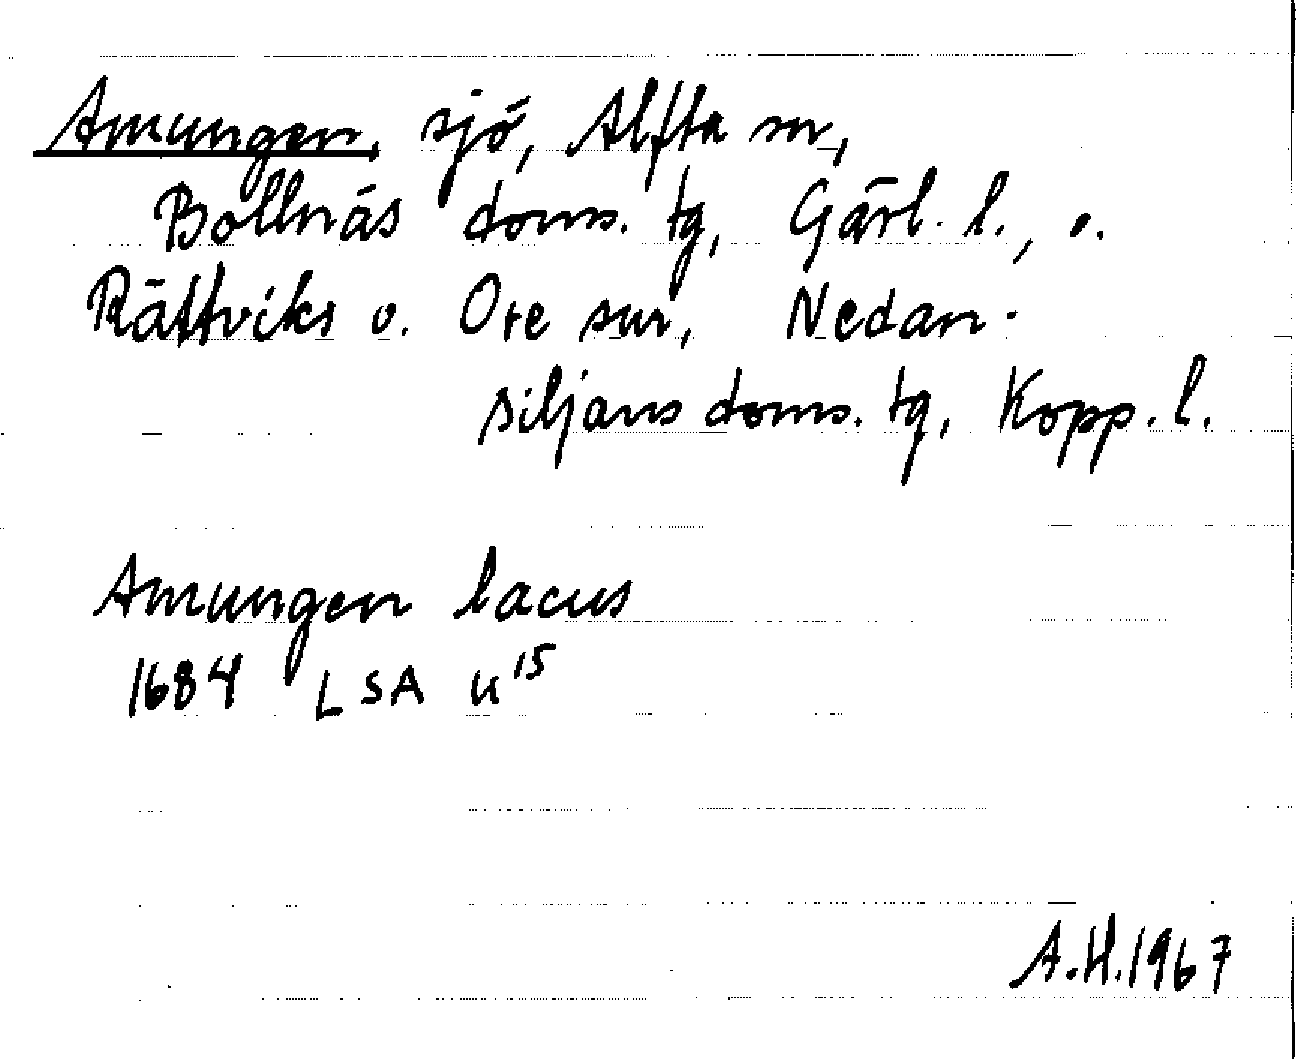 Amungen, sjö, Alfta sn,
Bollnäs doms. tg, Gävl. l., o.
Rättviks o. Ore snr, Nedan-
siljans doms. tg, Kopp. l.
Amungen lacus
1684 LSA u15
A.H.1967